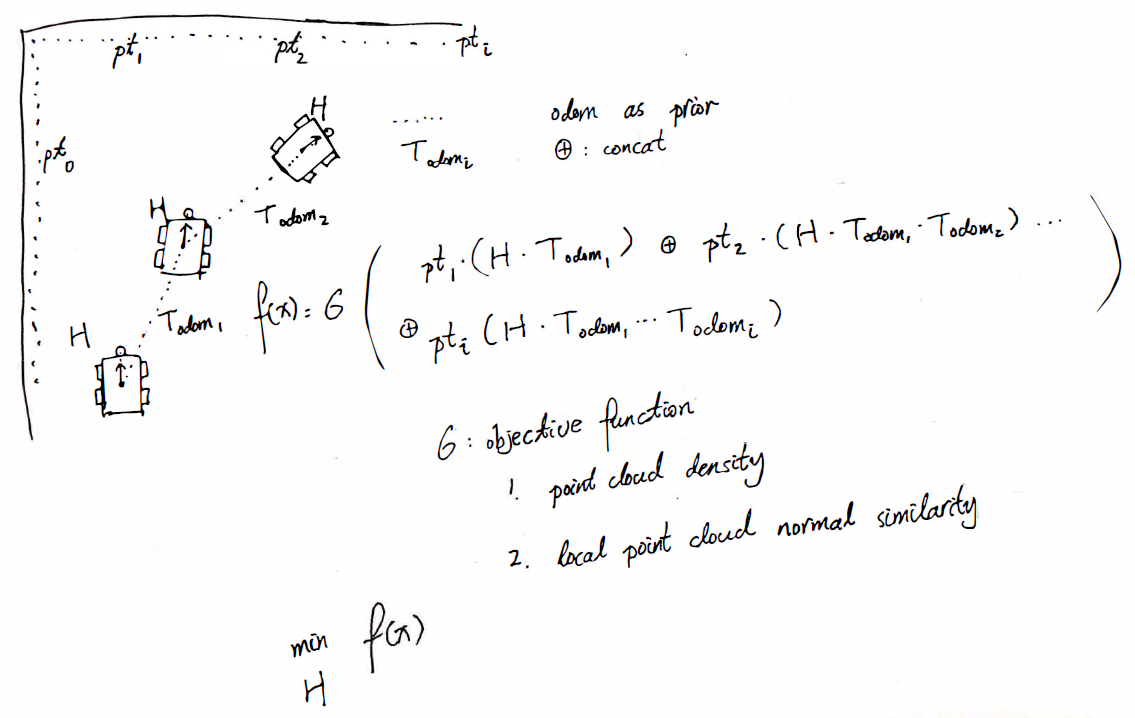 pt₁ pt₂ ptᵢ
pt₀
H
...... odom as prior
T odomᵢ ⊕ : concat
H
T odom₂
f(x) = G ( pt₁ · (H · T odom₁) ⊕ pt₂ · (H · T odom₁ · T odom₂) ...
T odom₁
⊕ ptᵢ (H · T odom₁ ... T odomᵢ) )
H
G : objective function
1. point cloud density
2. local point cloud normal similarity
min f(x)
H